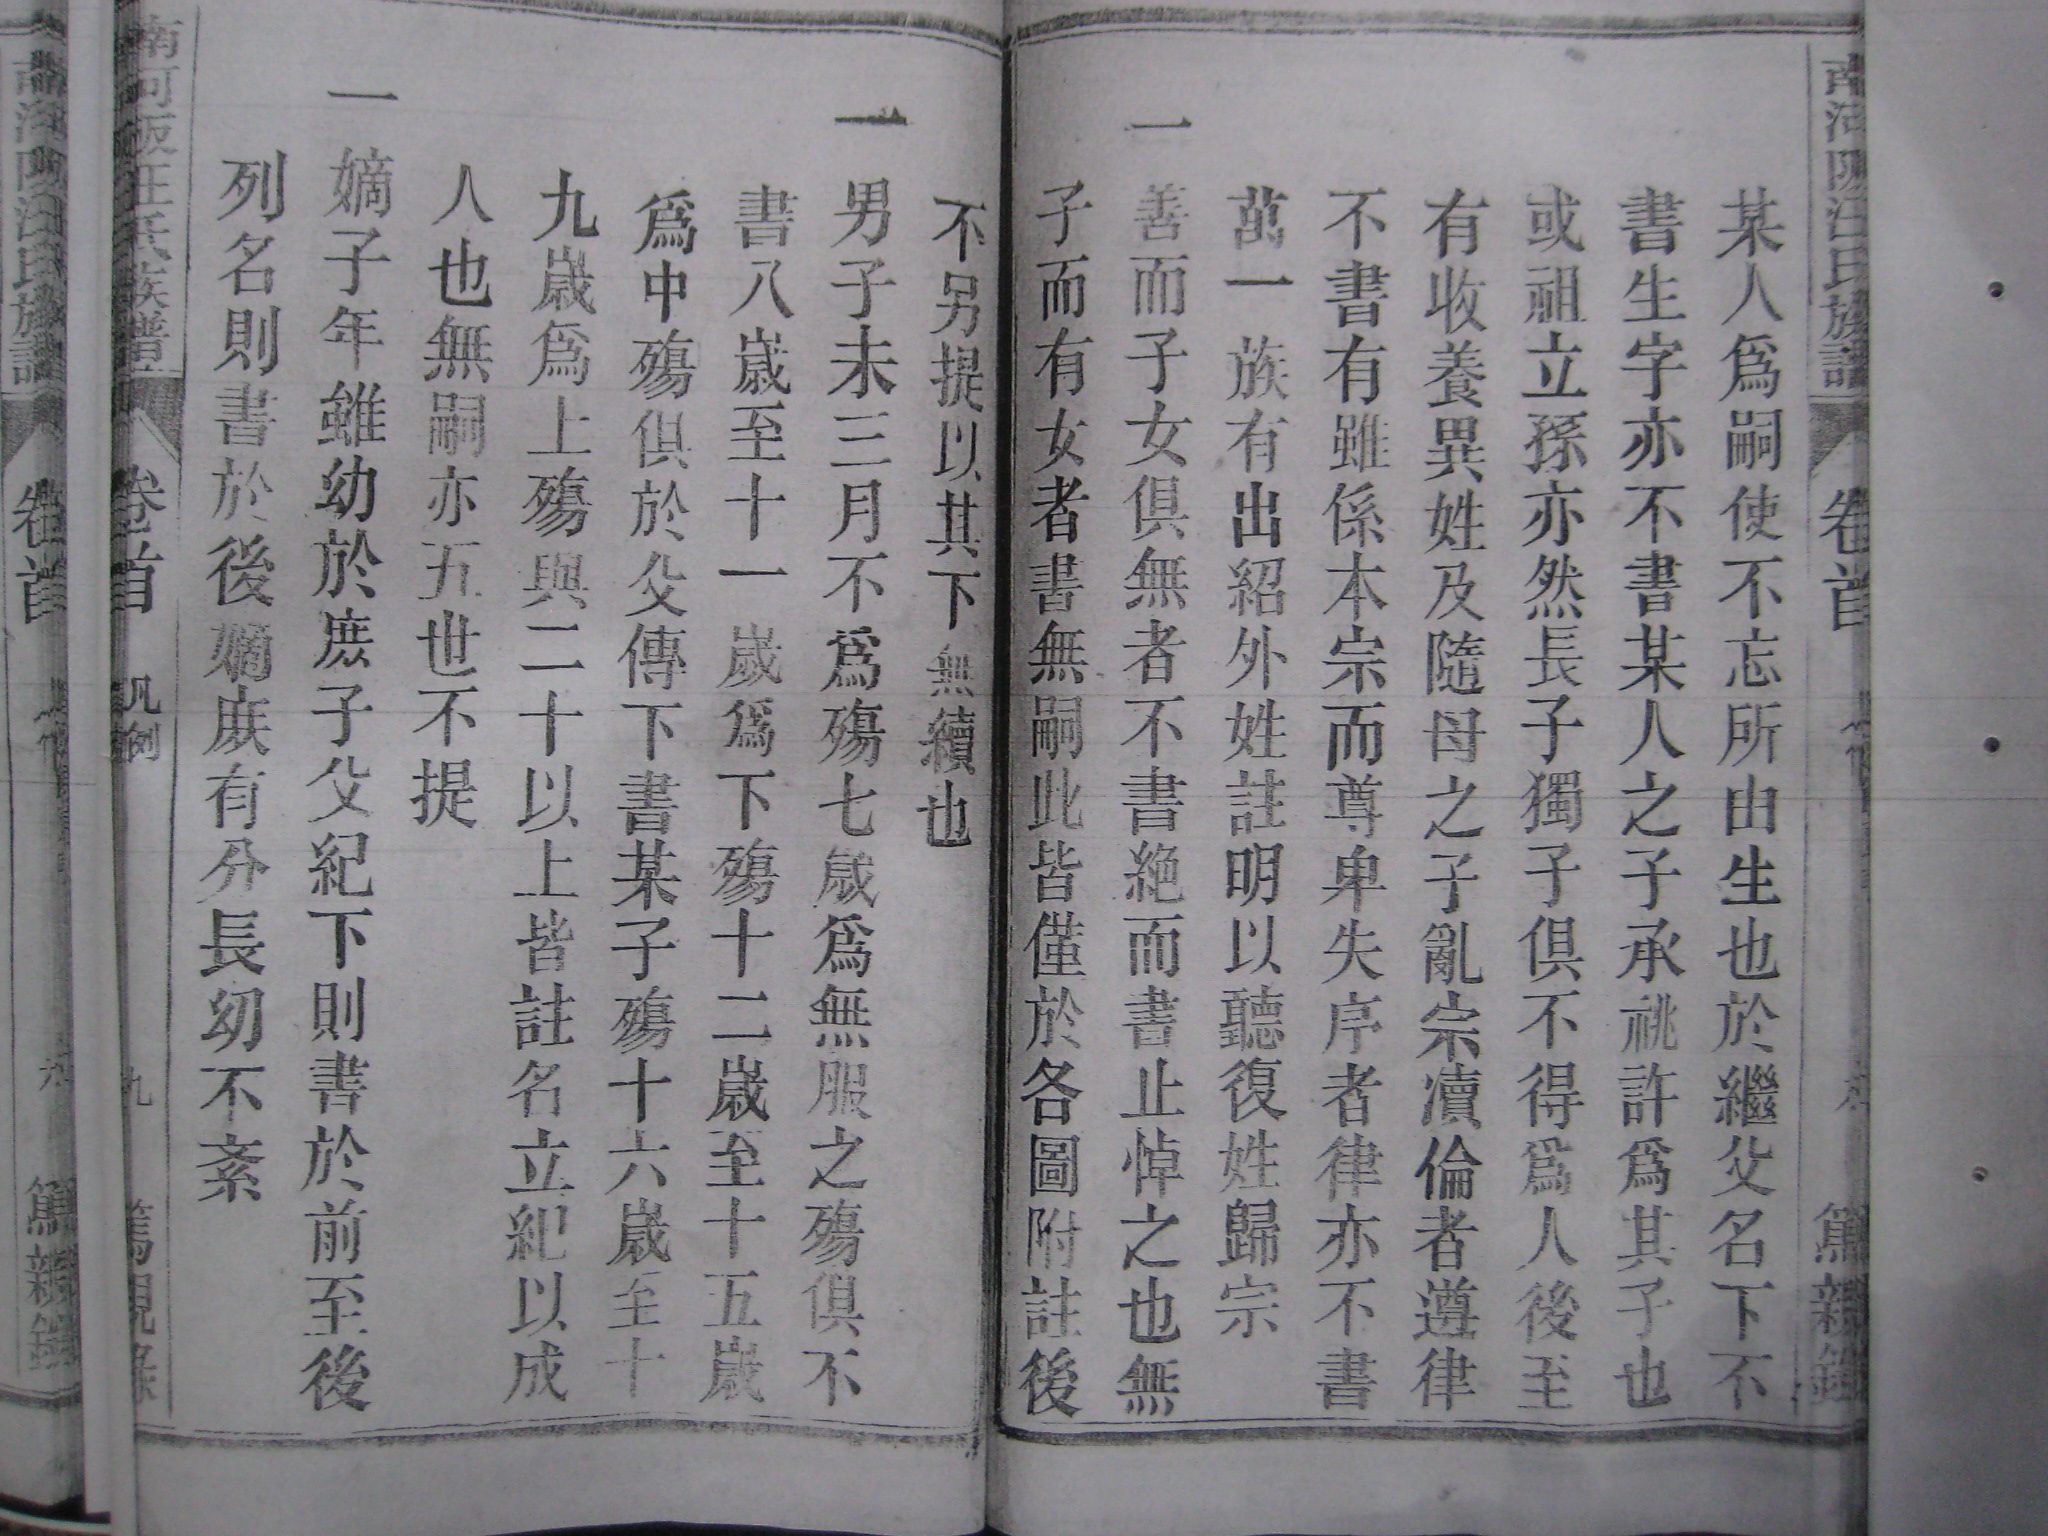 某人爲嗣使不忘所由生也於繼父名下不
書生字亦不書某人之子承祧許爲其子也
或祖立孫亦然長子獨子俱不得爲人後至
有收養異姓及隨母之子亂宗瀆倫者遵律
不書有雖係本宗而尊卑失序者律亦不書
萬一族有出紹外姓註明以聽復姓歸宗
一善而子女俱無者不書絶而書止悼之也無
子而有女者書無嗣此皆僅於各圖附註後
不另提以其下無續也
一男子未三月不爲殤七歲爲無服之殤俱不
書八歲至十一歲爲下殤十二歲至十五歲
爲中殤俱於父傳下書某子殤十六歲至十
九歲爲上殤與二十以上皆註名立紀以成
人也無嗣亦五世不提
一嫡子年雖幼於庶子父紀下則書於前至後
列名則書於後嫡庶有分長幼不紊
南河版汪氏族譜
卷首
凡例
九
篤親錄